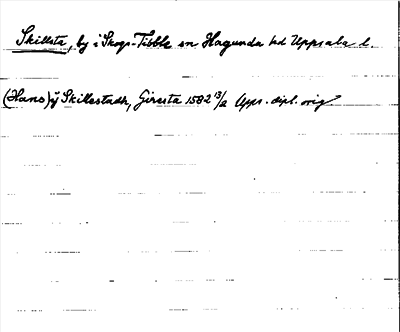 Skillsta, by i Skogs-Tibble sn Hagunda hd Uppsala l.
(Hans) ij Skillestadh, Giresta 1582 13/2 Upps. dipl. orig